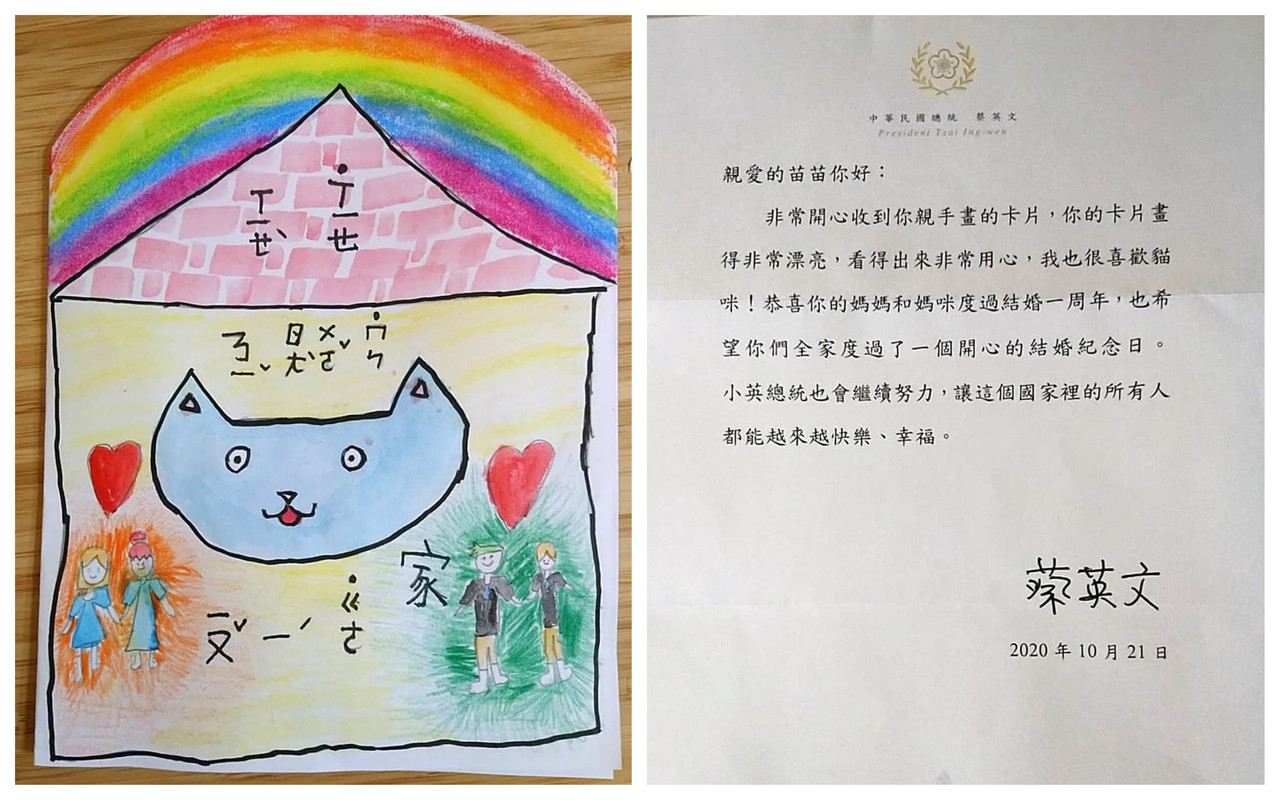 ㄒㄧㄝˋ ˙ㄒㄧㄝ
ㄋㄧˇ ㄖㄤˋ ㄨㄛˇ ˙ㄇㄣ
ㄧㄡˇ ㄧˊ ˙ㄍㄜ 家
中華民國總統 蔡英文
President Tsai Ing-wen
親愛的苗苗你好：
非常開心收到你親手畫的卡片，你的卡片畫
得非常漂亮，看得出來非常用心，我也很喜歡貓
咪！恭喜你的媽媽和媽咪度過結婚一周年，也希
望你們全家度過了一個開心的結婚紀念日。
小英總統也會繼續努力，讓這個國家裡的所有人
都能越來越快樂、幸福。
蔡英文
2020 年 10 月 21 日